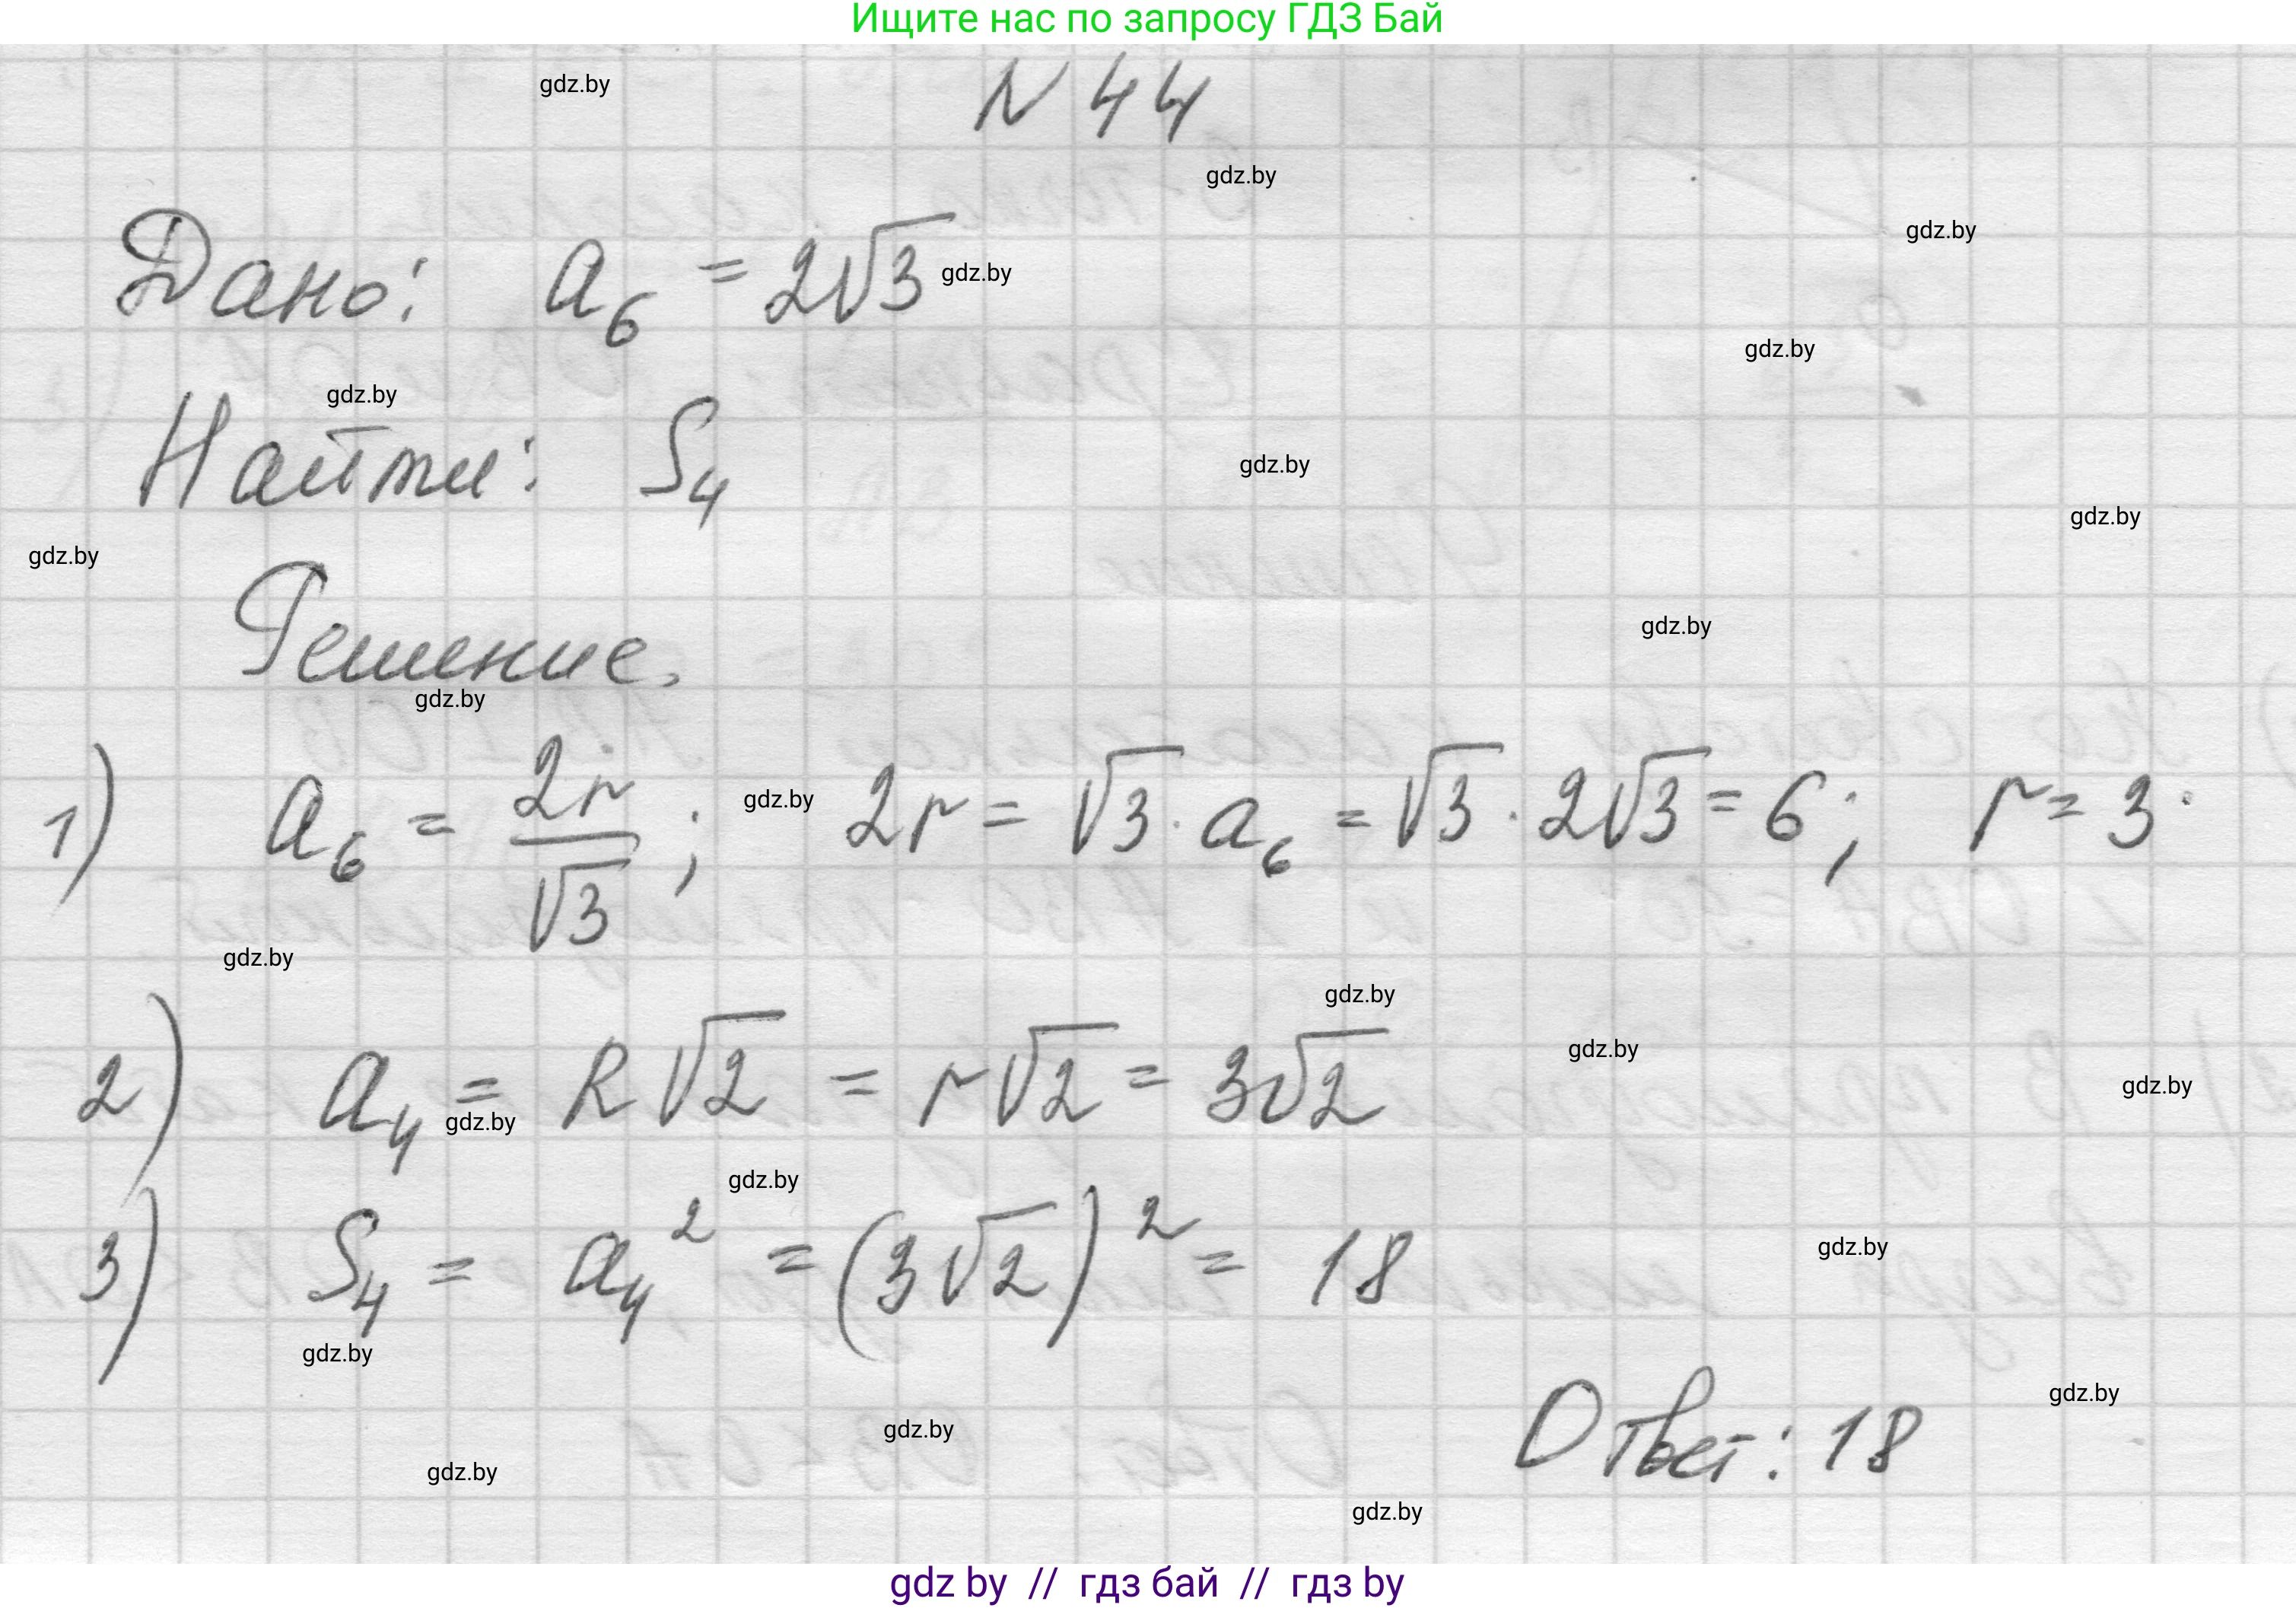 Ищите нас по запросу ГДЗ Бай
gdz.by
N 44
gdz.by
gdz.by
Дано: a₆ = 2√3 gdz.by
gdz.by
gdz.by
Найти: S₄
gdz.by
gdz.by
gdz.by
Решение.
gdz.by
gdz.by
1) a₆ = 2r/√3 ; gdz.by 2r = √3 · a₆ = √3 · 2√3 = 6; r = 3.
gdz.by
gdz.by
gdz.by
2) a₄ = R√2 = r√2 = 3√2
gdz.by
gdz.by
gdz.by
3) S₄ = a₄² = (3√2)² = 18
gdz.by
gdz.by
gdz.by
gdz.by
Ответ: 18
gdz.by
gdz.by
gdz by // гдз бай // гдз by